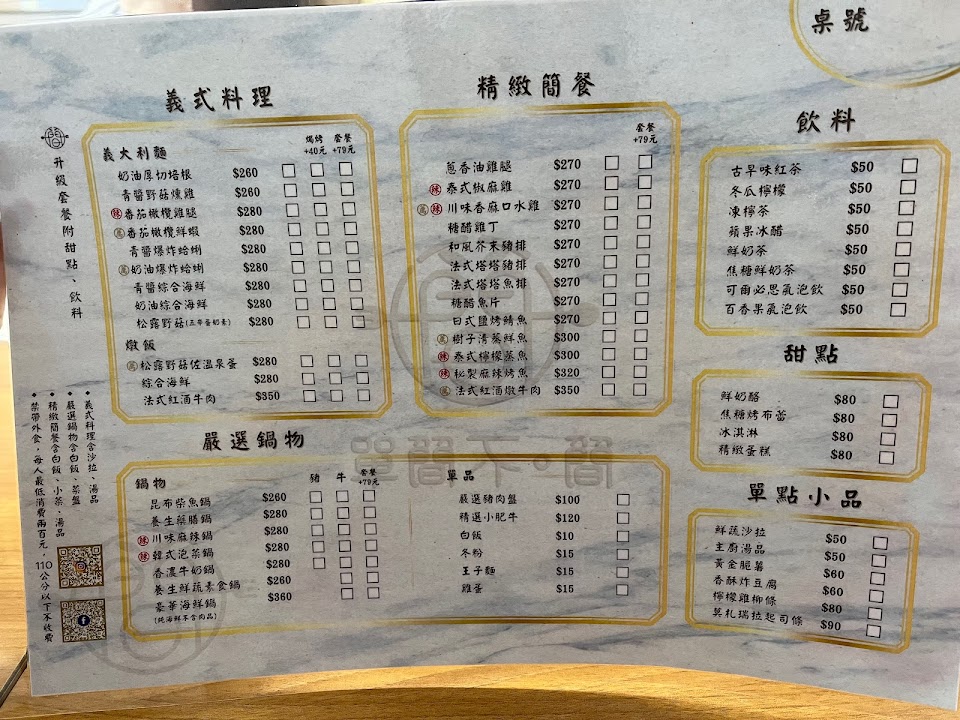 桌號
升級套餐附甜點、飲料
義式料理
焗烤 套餐
+40元 +79元
義大利麵
奶油厚切培根 $260
青醬野菇燻雞 $260
辣 番茄橄欖雞腿 $280
番茄橄欖鮮蝦 $280
青醬爆炸蛤蜊 $280
奶油爆炸蛤蜊 $280
青醬綜合海鮮 $280
奶油綜合海鮮 $280
松露野菇(五辛蛋奶素) $280
燉飯
松露野菇佐溫泉蛋 $280
綜合海鮮 $280
法式紅酒牛肉 $350
精緻簡餐
套餐
+79元
蔥香油雞腿 $270
辣 泰式椒麻雞 $270
辣 川味香麻口水雞 $270
糖醋雞丁 $270
和風芥末豬排 $270
法式塔塔豬排 $270
法式塔塔魚排 $270
糖醋魚片 $270
日式鹽烤鯖魚 $270
樹子清蒸鮮魚 $300
辣 泰式檸檬蒸魚 $300
辣 秘製麻辣烤魚 $320
法式紅酒燉牛肉 $350
飲料
古早味紅茶 $50
冬瓜檸檬 $50
凍檸茶 $50
蘋果冰醋 $50
鮮奶茶 $50
焦糖鮮奶茶 $50
可爾必思氣泡飲 $50
百香果氣泡飲 $50
甜點
鮮奶酪 $80
焦糖烤布蕾 $80
冰淇淋 $80
精緻蛋糕 $80
嚴選鍋物
鍋物 豬 牛 套餐
+79元
昆布柴魚鍋 $260
養生藥膳鍋 $280
辣 川味麻辣鍋 $280
辣 韓式泡菜鍋 $280
香濃牛奶鍋 $280
養生鮮蔬素食鍋 $260
豪華海鮮鍋 $360
(純海鮮不含肉品)
單品
嚴選豬肉盤 $100
精選小肥牛 $120
白飯 $10
冬粉 $15
王子麵 $15
雞蛋 $15
單簡不。簡
單點小品
鮮蔬沙拉 $50
主廚湯品 $50
黃金脆薯 $60
香酥炸豆腐 $60
檸檬雞柳條 $80
莫札瑞拉起司條 $90
◆義式料理含沙拉、湯品
◆嚴選鍋物含白飯、菜盤
◆精緻簡餐含白飯、小菜、湯品
◆禁帶外食,每人最低消費兩百元,110公分以下不收費